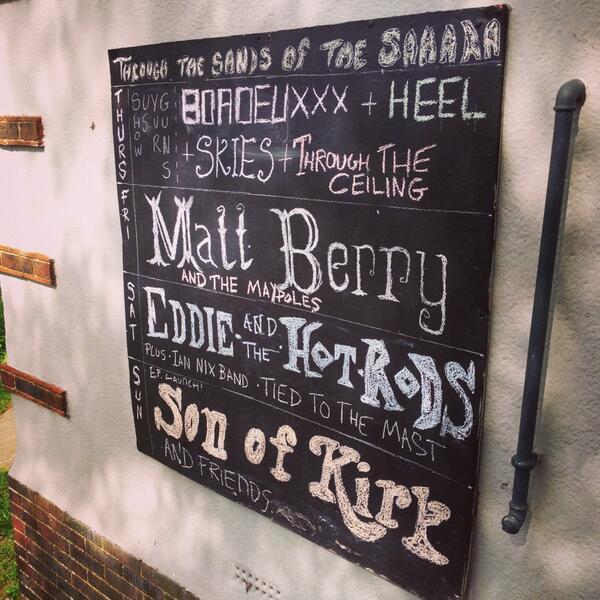 THROUGH THE SANDS OF THE SAHARA
THURS
SUYG
HSUU
ORN
WS
BORDEUXXX + HEEL
+ SKIES + THROUGH THE
CEILING
FRI
Matt Berry
AND THE MAYPOLES
SAT
EDDIE AND THE HOT RODS
PLUS · IAN NIX BAND · TIED TO THE MAST
SUN
E.P. LAUNCH!
Son of Kirk
AND FRIENDS